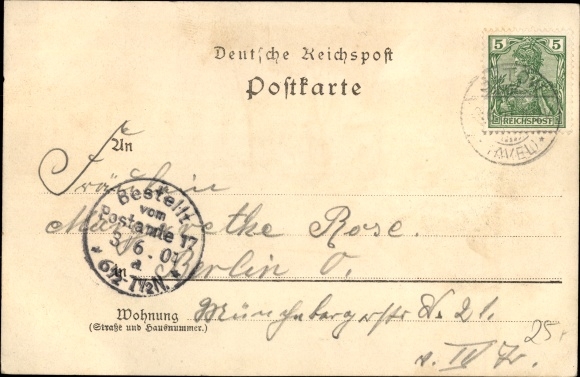 Deutsche Reichspost
Postkarte
5 5
REICHSPOST
(HAVEL)
An
Fräulein
Margarethe Rose.
in Berlin O.
Bestellt
vom
Postamte 17
3/6.01
6½-7½N.
Wohnung
(Straße und Hausnummer.)
Münchebergerstr N. 21.
v. IV Tr.
25.-